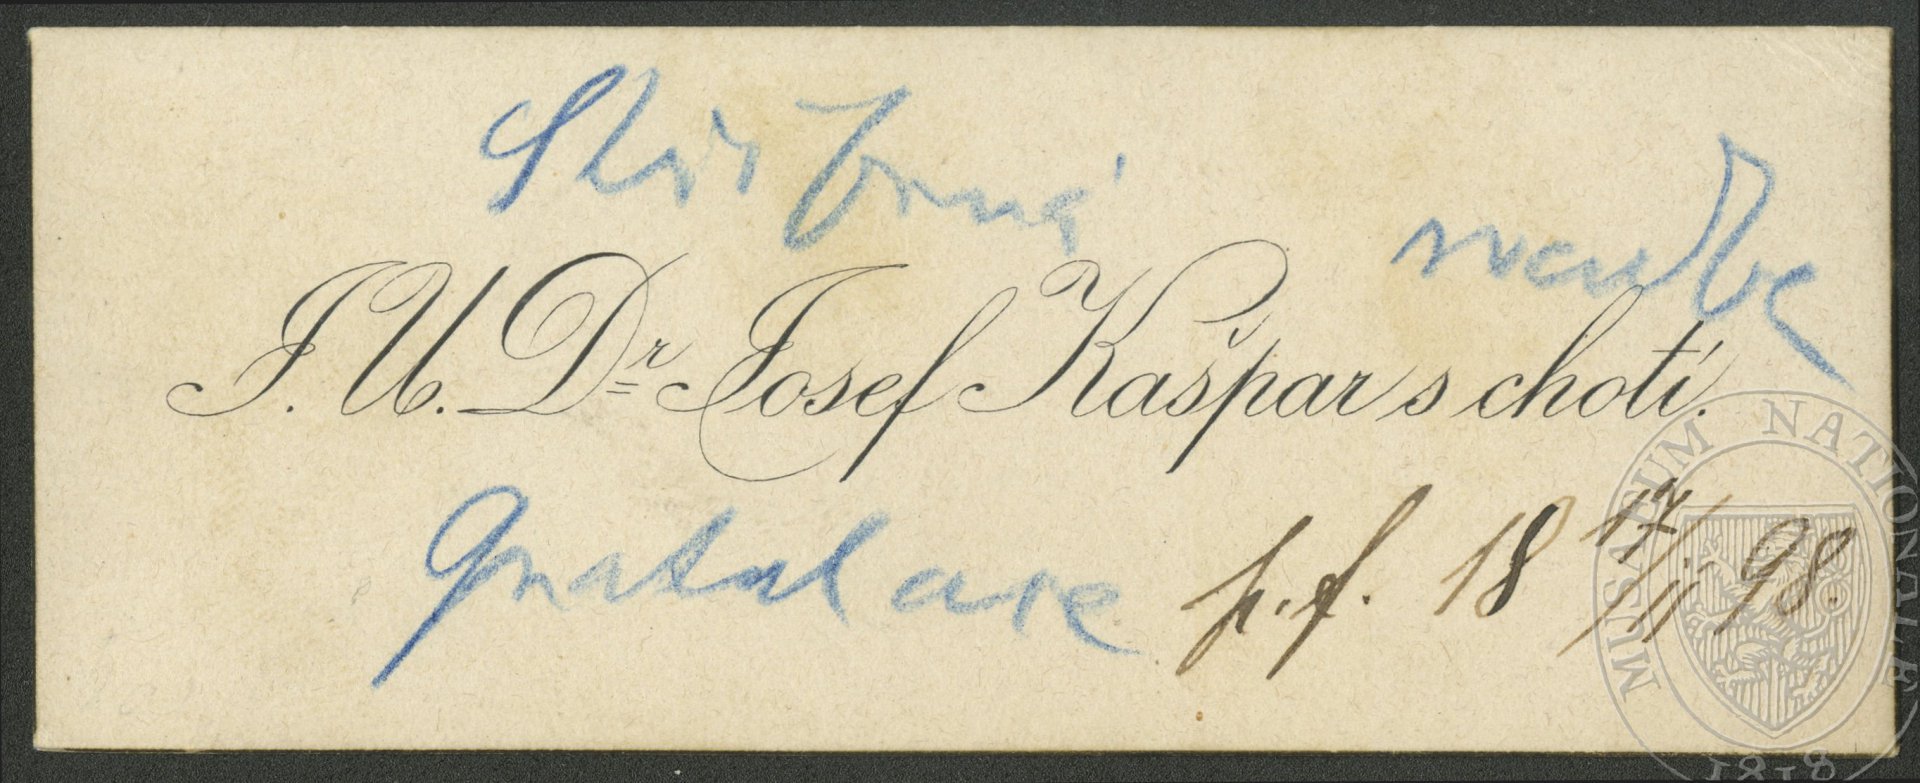 Stříbrná svadba
J. U. Dr. Josef Kašpar s chotí.
Gratulace p. f. 18 17/II 98.
MUSAEUM NATIONALE
1818